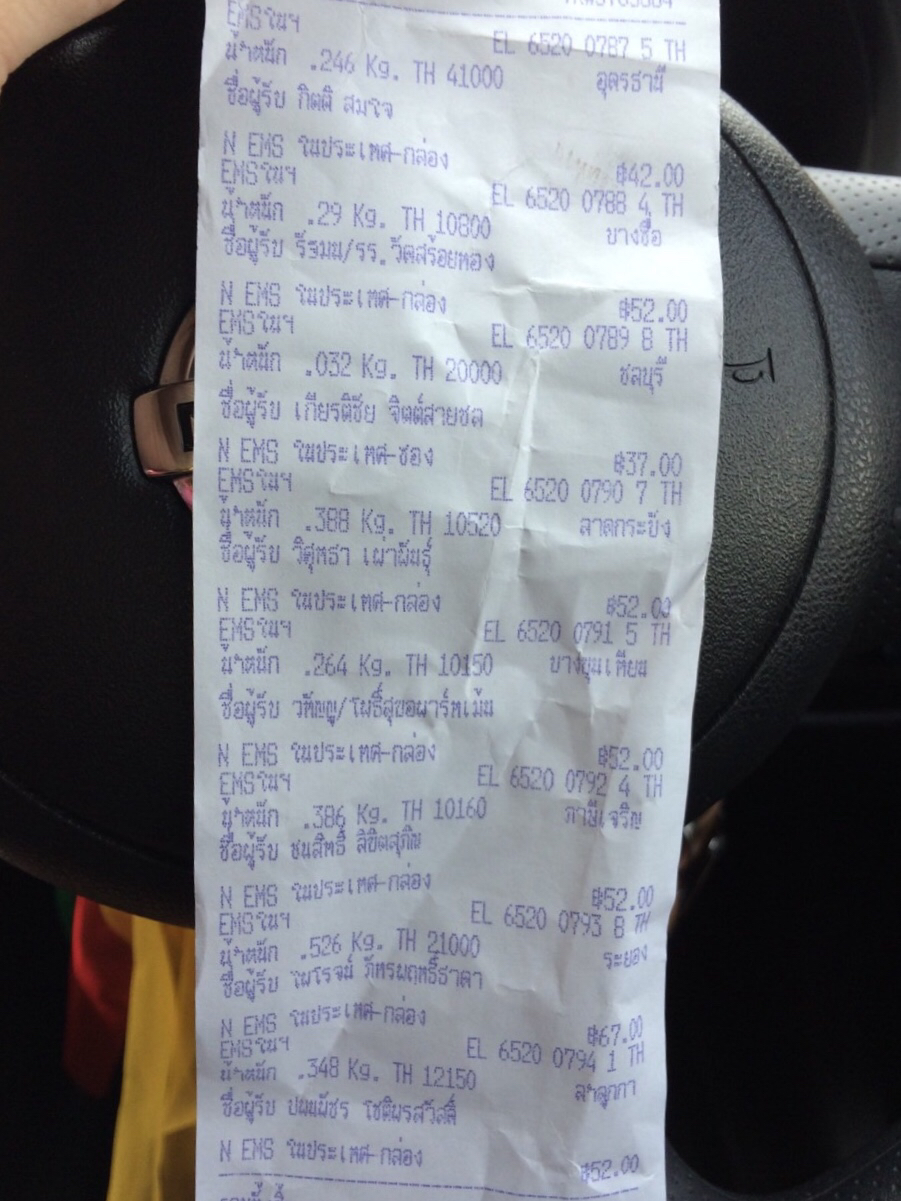 EMSในฯ EL 6520 0787 5 TH
น้ำหนัก .246 Kg. TH 41000 อุดรธานี
ชื่อผู้รับ กิตติ สมใจ
N EMS ในประเทศ-กล่อง ฿42.00
EMSในฯ EL 6520 0788 4 TH
น้ำหนัก .29 Kg. TH 10800 บางซื่อ
ชื่อผู้รับ รัฐมน/รร.วัดสร้อยทอง
N EMS ในประเทศ-กล่อง ฿52.00
EMSในฯ EL 6520 0789 8 TH
น้ำหนัก .032 Kg. TH 20000 ชลบุรี
ชื่อผู้รับ เกียรติชัย จิตต์สายชล
N EMS ในประเทศ-ซอง ฿37.00
EMSในฯ EL 6520 0790 7 TH
น้ำหนัก .388 Kg. TH 10520 ลาดกระบัง
ชื่อผู้รับ วิศุทธา เผ่าพันธุ์
N EMS ในประเทศ-กล่อง ฿52.00
EMSในฯ EL 6520 0791 5 TH
น้ำหนัก .264 Kg. TH 10150 บางขุนเทียน
ชื่อผู้รับ วทัญญู/โพธิ์สุขอพาร์ทเม้น
N EMS ในประเทศ-กล่อง ฿52.00
EMSในฯ EL 6520 0792 4 TH
น้ำหนัก .386 Kg. TH 10160 ภาษีเจริญ
ชื่อผู้รับ ชนสิทธิ์ ลิขิตสุภิณ
N EMS ในประเทศ-กล่อง ฿52.00
EMSในฯ EL 6520 0793 8 TH
น้ำหนัก .526 Kg. TH 21000 ระยอง
ชื่อผู้รับ ไพโรจน์ ภัทรพฤทธิ์ธาดา
N EMS ในประเทศ-กล่อง ฿67.00
EMSในฯ EL 6520 0794 1 TH
น้ำหนัก .348 Kg. TH 12150 ลำลูกกา
ชื่อผู้รับ ปณณพัชร โชติพรสวัสดิ์
N EMS ในประเทศ-กล่อง ฿52.00